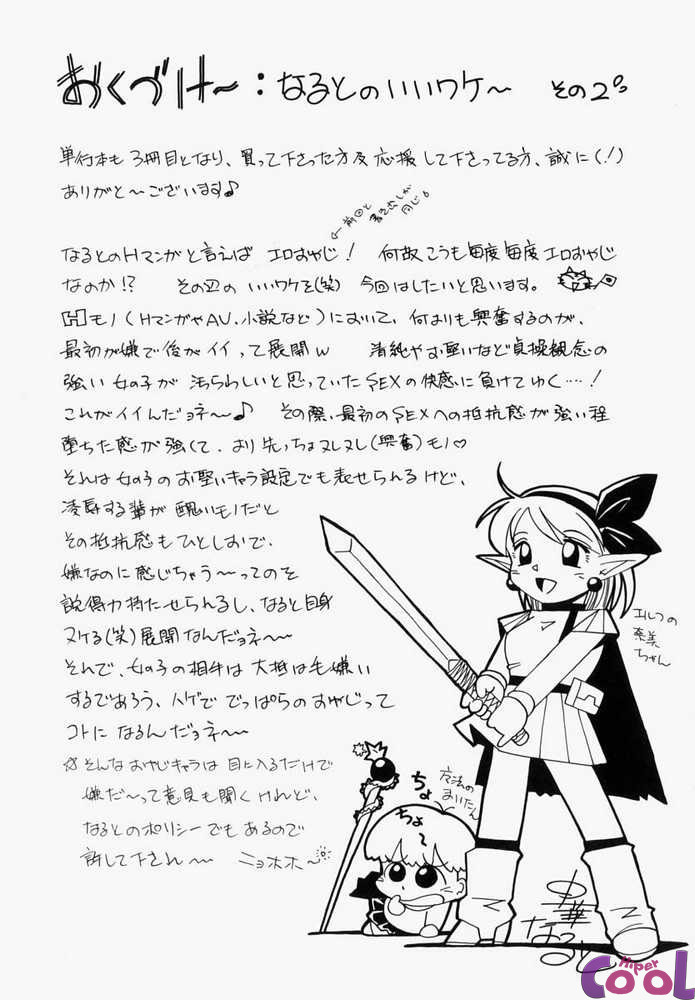 おくづけ〜:なるとのいいワケ〜 その2。
単行本も3冊目となり、買って下さった方及応援して下さってる方、誠に(!)
ありがと〜ございます♪
←前回と
書き出しが
同じ。
なるとのHマンガと言えば エロおやじ! 何故こうも毎度毎度エロおやじ
なのか!? その辺のいいワケを(笑) 今回はしたいと思います。
Hモノ(HマンガやAV、小説など)において、何よりも興奮するのが、
最初が嫌で後がイイって展開w 清純やお堅いなど貞操観念の
強い女の子が汚らわしいと思っていたSEXの快感に負けてゆく…!
これがイイんだョネ〜♪ その際、最初のSEXへの抵抗感が強い程
堕ちた感が強くて、より先っちょヌレヌレ(興奮)モノ♡
それは女の子のお堅いキャラ設定でも表せられるけど、
凌辱する輩が醜いモノだと
その抵抗感もひとしおで、
嫌なのに感じちゃう〜ってのを
説得力持たせられるし、なると自身
ヌケる(笑)展開なんだョネ〜
それで、女の子の相手は大抵は毛嫌い
するであろう、ハゲで でっぱらのおやじって
コトになるんだョネ〜
☆そんなおやじキャラは目に入るだけで
嫌だ〜って意見も聞くけれど、
なるとのポリシーでもあるので
許して下され〜 ニョホホ〜
エルフの
奈美
ちゃん
魔法の
まいたん
ちょ
ちょ〜
中華
なると
Hiper
COOL